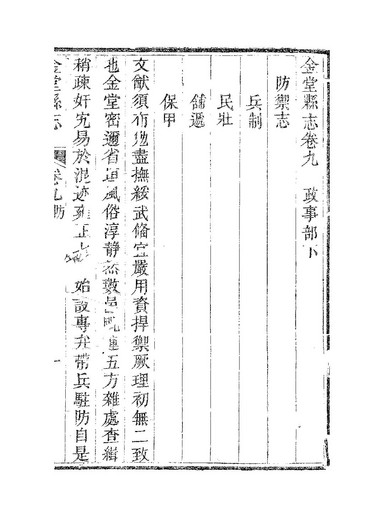 金堂縣志卷九　政事部下
防禦志
兵制
民壯
舖遞
保甲
文猷須布勉盡撫綏武備宜嚴用資捍禦厥理初無二致
也金堂密邇省垣風俗淳靜數邑五方雜處查緝
稍疎奸宄易於混迹雍正始設專弁帶兵駐防自是
金堂縣志
卷九
一